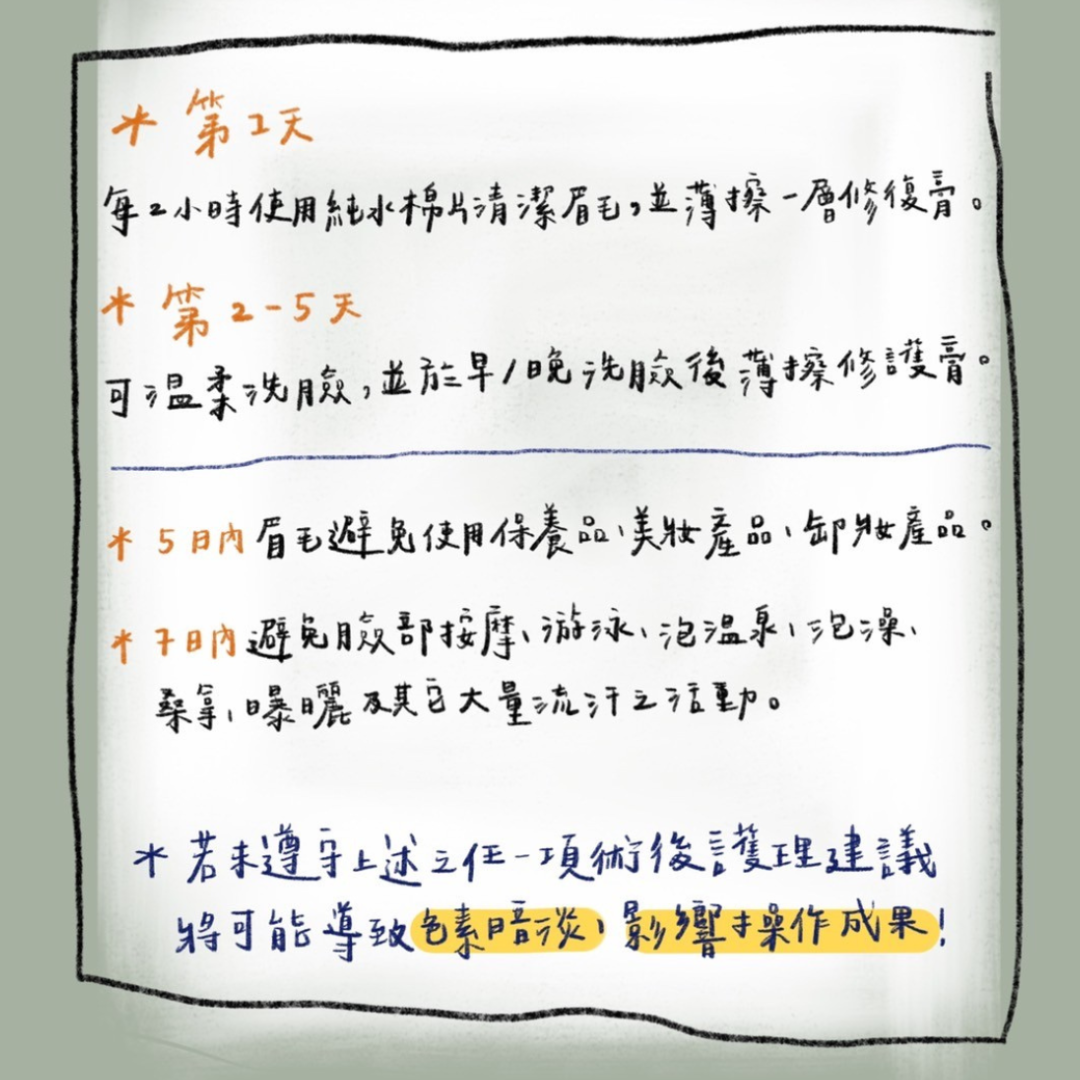 * 第1天
每2小時使用純水棉片清潔眉毛,並薄擦一層修復膏。
* 第2-5天
可溫柔洗臉,並於早/晚洗臉後薄擦修護膏。
* 5日內眉毛避免使用保養品、美妝產品、卸妝產品。
* 7日內避免臉部按摩、游泳、泡溫泉、泡澡、
桑拿、曝曬及其它大量流汗之活動。
* 若未遵守上述之任一項術後護理建議
將可能導致色素暗淡、影響操作成果!